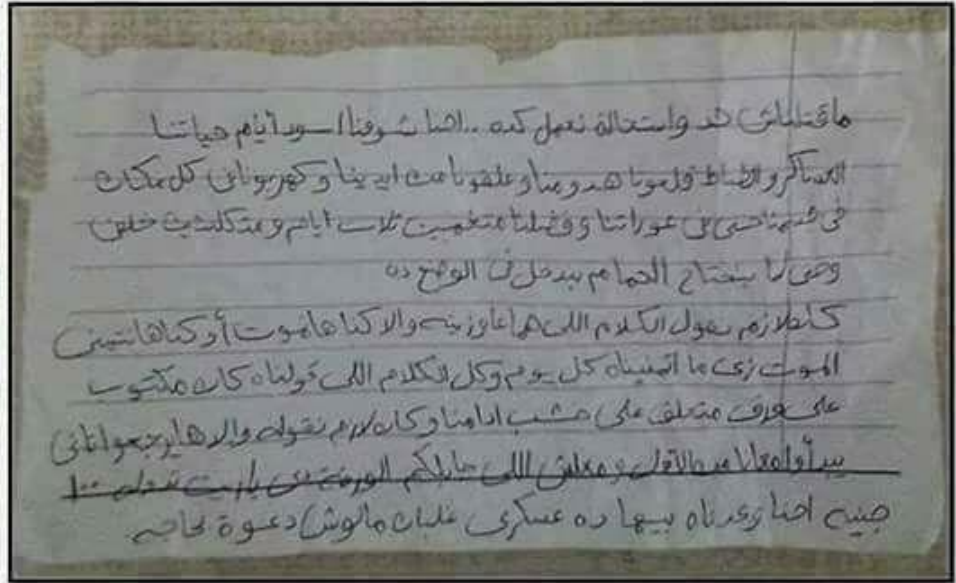 ماقتلناش حد واستحالة نعمل كده .. احنا شوفنا اسود أيام حياتنا
العساكر والظباط قلعونا هدومنا وعلقونا من ايدينا وكهربونا في كل مكان
في جسمنا حتى في عوراتنا وفضلنا متغميين تلات ايام ومتكلبشين خلفي
وحتى لما بنحتاج الحمام بيدخل في الوضع ده
كان لازم نقول الكلام اللي هما عاوزينه والا كنا هانموت أو كنا هانتمنى
الموت زي ما اتمنيناه كل يوم وكل الكلام اللي قولناه كان مكتوب
على ورق متعلق على خشب ادامنا وكان لازم نقوله والا هايرجعوا تاني
يبدأوا معانا من الأول ومعلش اللي جابلكم الورقة دي ياريت
جنيه احنا وعدناه بيها ده عسكري غلبان مالوش دعوة بحاجه